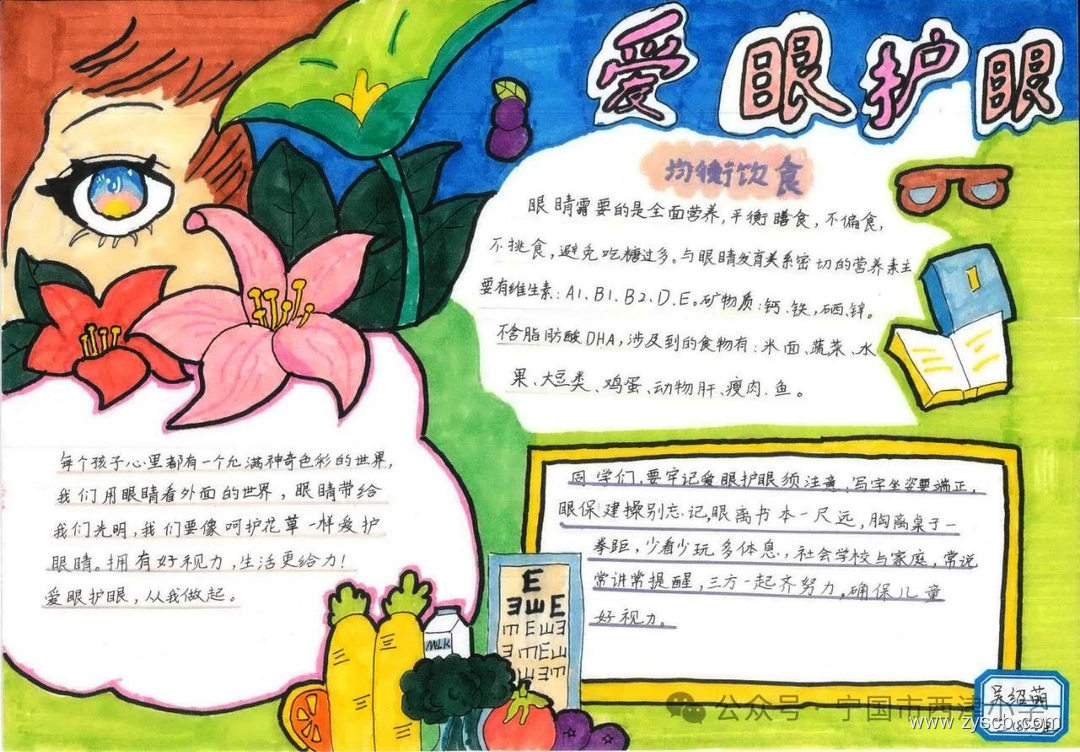 爱眼护眼
均衡饮食
眼睛需要的是全面营养,平衡膳食,不偏食,
不挑食,避免吃糖过多。与眼睛发育关系密切的营养素主
要有维生素:A1、B1、B2、D、E。矿物质:钙、铁、硒、锌。
不含脂肪酸DHA,涉及到的食物有:米面、蔬菜、水
果、大豆类、鸡蛋、动物肝、瘦肉、鱼。
每个孩子心里都有一个充满神奇色彩的世界,
我们用眼睛看外面的世界,眼睛带给
我们光明,我们要像呵护花草一样爱护
眼睛。拥有好视力,生活更给力!
爱眼护眼,从我做起。
同学们,要牢记爱眼护眼须注意,写字坐姿要端正,
眼保健操别忘记,眼离书本一尺远,胸离桌子一
拳距,少看少玩多体息,社会学校与家庭,常说
常讲常提醒,三方一起齐努力,确保儿童
好视力。
E
ƎШE
MILK
公众号·宁国市西津小学
www.zyscb.com